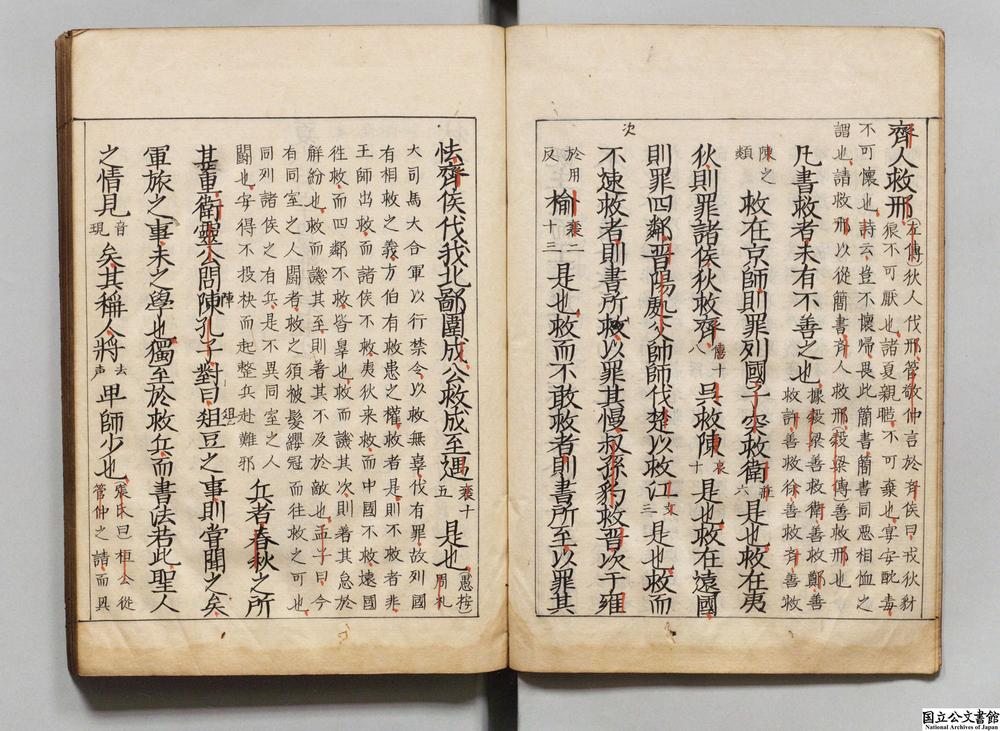 齊人救邢左傳狄人伐邢管敬仲言於齊侯曰戎狄豺
狼不可厭也諸夏親暱不可棄也宴安酖毒
不可懷也詩云豈不懷歸畏此簡書簡書同惡相恤之
謂也請救邢以從簡書齊人救邢穀梁傳善救邢也
凡書救者未有不善之也據穀梁善救衛善救鄭善
救許善救徐善救齊善救
陳之
類
救在京師則罪列國子突救衛莊六是也救在夷
狄則罪諸侯狄救齊僖十八吳救陳哀十是也救在遠國
則罪四鄰晉陽處父帥師伐楚以救江文三是也救而
不速救者則書所救以罪其慢叔孫豹救晉次于雍
次
於用
反
榆襄二十三是也救而不敢救者則書所至以罪其
怯齊侯伐我北鄙圍成公救成至遇襄十五是也愚按
周礼
大司馬大合軍以行禁令以救無辜伐有罪故列國
有相救之義方伯有救患之權救者是則不救者非
王師出救而諸侯不救夷狄來救而中國不救遠國
徃救而四鄰不救皆辠也救而譏其次則著其怠於
解紛也救而譏其至則著其不及於敵也孟子曰今
有同室之人闘者救之須被髮纓冠而往救之可也
同列諸侯之有兵是不異同室之人
闘也安得不投袂而起整兵赴難邪
兵者春秋之所
甚重衛靈公問陳陣孔子對曰俎俎豆之事則甞聞之矣
軍旅之事未之學也獨至於救兵而書法若此聖人
之情見音現矣其稱人將去声卑師少也張氏曰桓公從
管仲之請而具
国立公文書館
National Archives of Japan